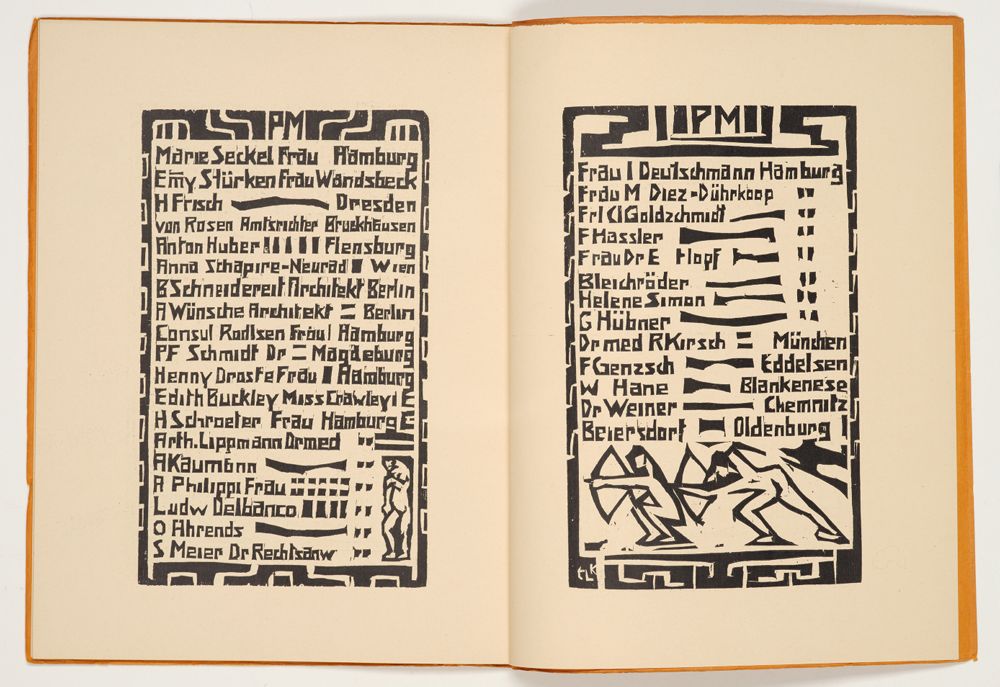 PM
Marie Seckel Frau Hamburg
Emy Stürken Frau Wandsbeck
H Frisch Dresden
von Rosen Amtsrichter Bruckhausen
Anton Huber Flensburg
Anna Schapire-Neurad Wien
B Schneidereit Architekt Berlin
A Wünsche Architekt Berlin
Consul Rodlsen Frau Hamburg
PF Schmidt Dr Magdeburg
Henny Droste Frau Hamburg
Edith Buckley Miss Crawley
H Schroeter Frau Hamburg
Arth. Lippmann Dr med "
A Kaumann "
A Philippi Frau "
Ludw Delbanco "
O Ahrends "
S Meier Dr Rechtsanw "
PM
Frau I Deutschmann Hamburg
Frau M Diez-Dührkoop "
Frl Cl Goldzchmidt "
F Hassler "
Frau Dr E Hopf "
Bleichröder "
Helene Simon "
G Hübner "
Dr med R Kirsch München
F Genzsch Eddelsen
W Hane Blankenese
Dr Weiner Chemnitz
Beiersdorf Oldenburg I